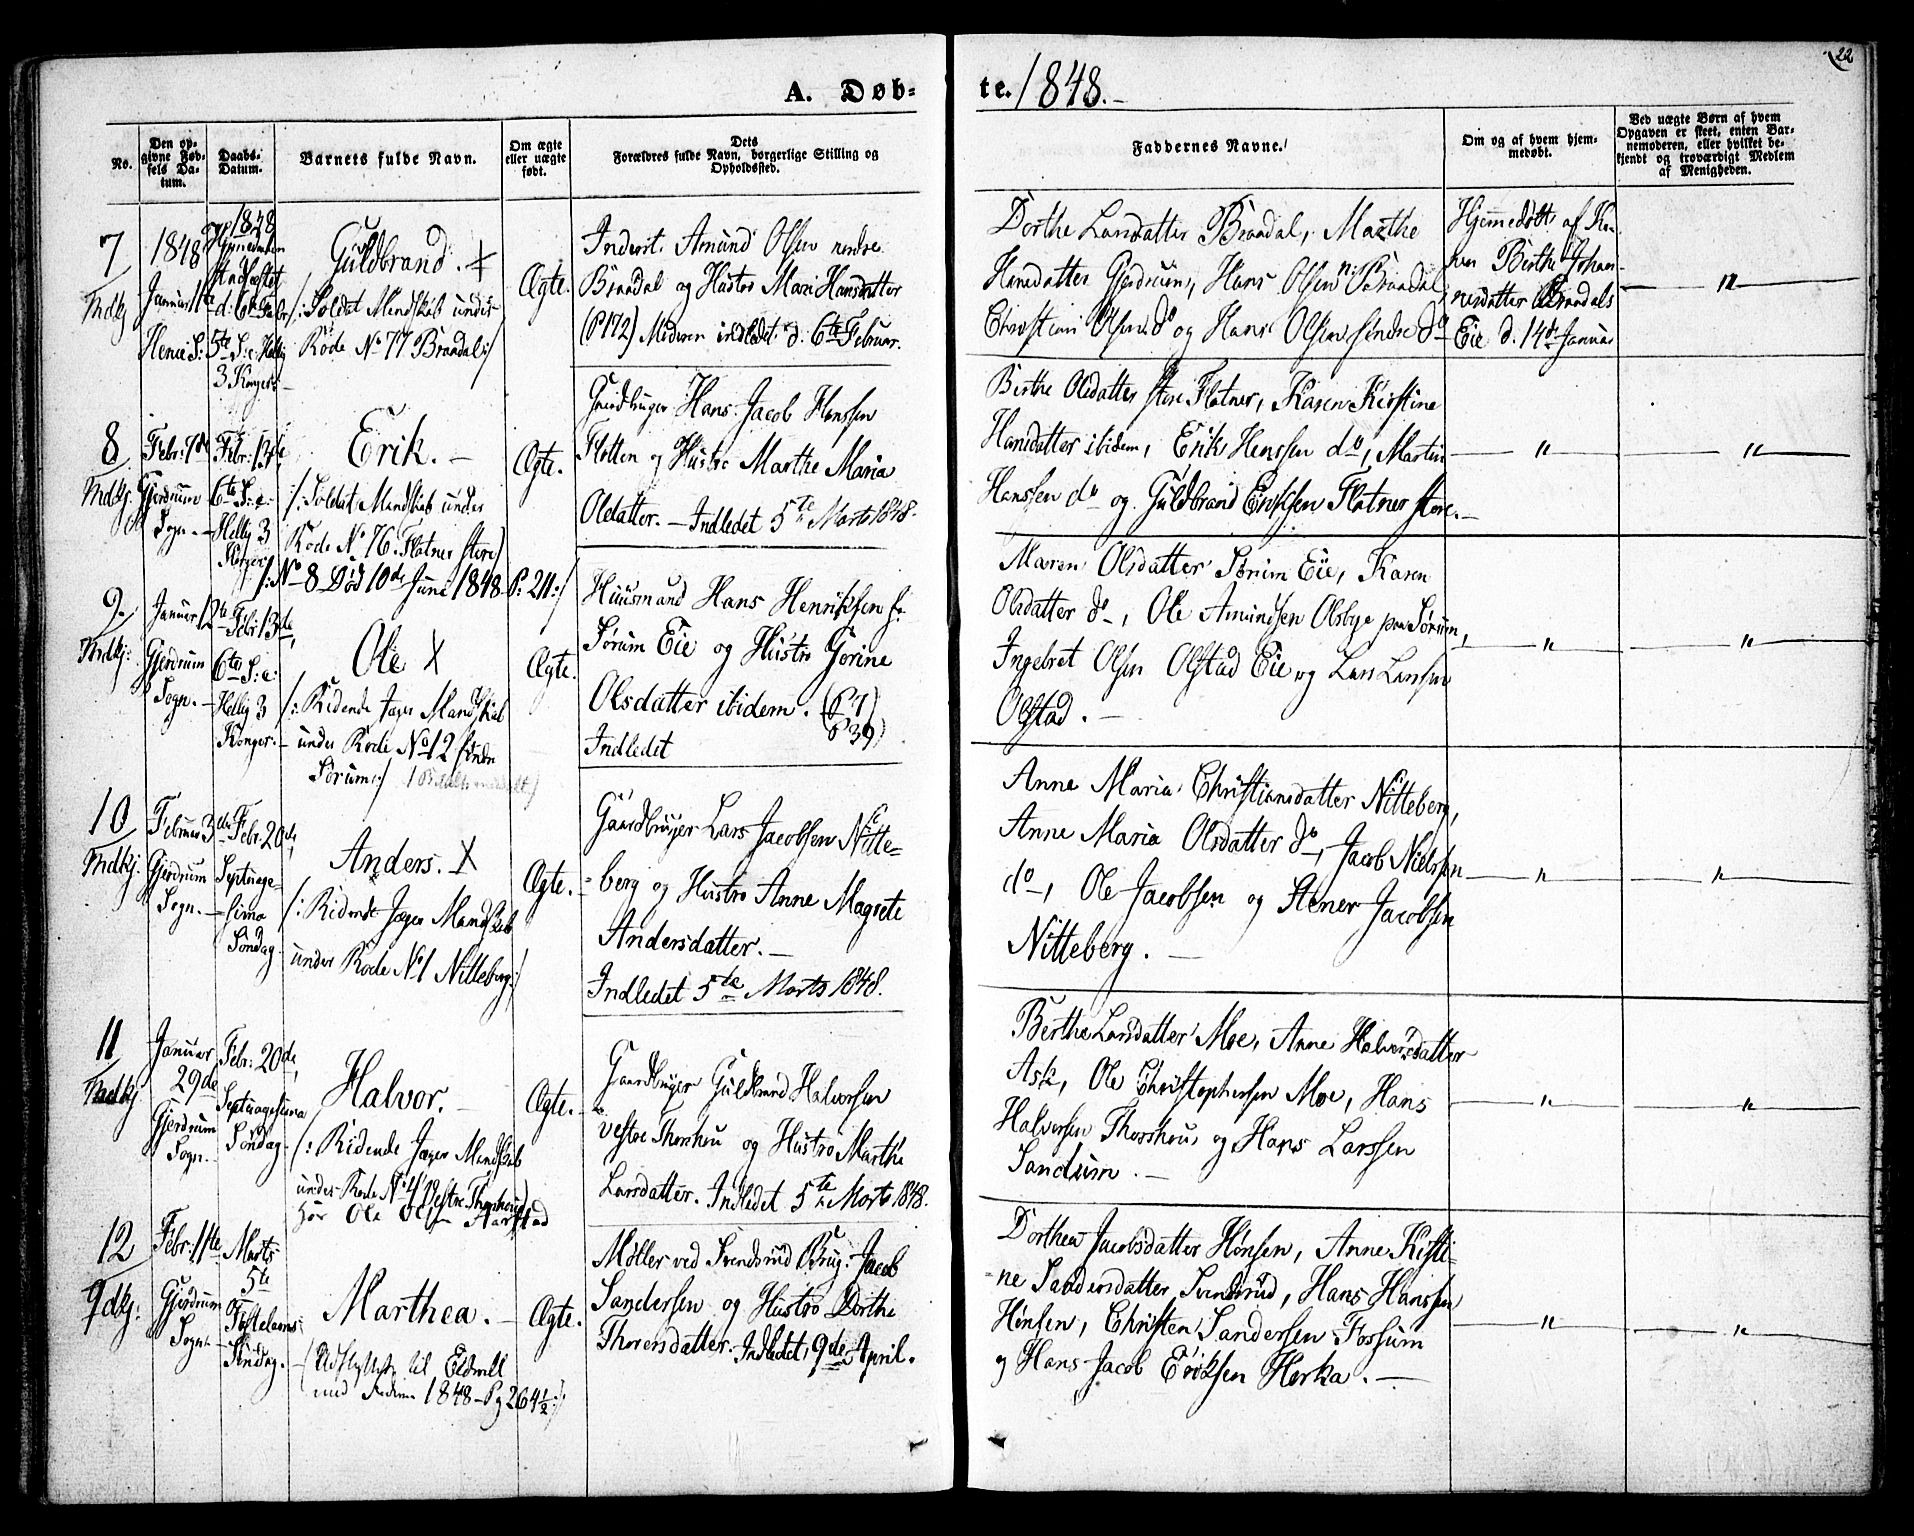 22
A. Døb-
te. 1848.-
No.
Den op-
givne Fød-
sels Da-
tum.
Daabs-
Datum.
Barnets fulde Navn.
Om ægte
eller uægte
født.
Dets
Forældres fulde Navn, borgerlige Stilling og
Opholdssted.
Faddernes Navne.
Om og af hvem hjem-
medøbt.
Ved uægte Børn af hvem
Opgaven er skeet, enten Bar-
nemoderen, eller hvilket be-
kjendt og troværdigt Medlem
af Menigheden.
7
Mdkj
1848
Januar 11te
1848
Hjemmedaaben
Stadfæstet
d. 6te Febr
5te S: e: Hellig
3 Konger.-
Guldbrand.
/: Soldat Mandskab under
Rode No 77 Braadal:/
Ægte.
Inderst Amund Olsen nordre
Braadal og Hustro Mari Hansdatter
(P172) Moderen indledet d. 6te Februar.
Dorthe Larsdatter Braadal, Marthe
Hansdatter Gjerdrum, Hans Olsen n: Braadal,
Christian Olsen do og Hans Olsen søndre do
Hjemedøbt af Ko-
ner Berthe Johan-
nesdatter Braadals
Eie d. 14de Januar
"
8
Mdkj.
Febr: 7de
Gjerdrum
Sogn.-
Febr: 13de,
6te S: e:
Hellig 3
Konger
Erik.-
/: Soldat Mandskab under
Rode No 76. Flatner store)
/: No 8 Død 10de Juni 1848 P: 211:/
Ægte.
Gaardbruger Hans Jacob Hanssen
Flatten og Hustro Marthe Maria
Olsdatter.- Indledet 5te Marts 1848.
Berthe Olsdatter store Flatner, Karen Kirstine
Hansdatter ibidem, Erik Hanssen do, Martin
Hanssen do og Guldbrand Eriksen Flatner store.-
"
"
9.
Mdkj:
Januar 12te
Gjerdrum
Sogn.-
Febr: 13de,
6te S: e:
Hellig 3
Konger.-
Ole X
/: Ridende Jæger Mandskab
under Rode No 12 søndre
Sørum:/
Ægte.
Huusmand Hans Henriksen
Sørum Eie og Hustro Gorine
Olsdatter ibidem. (P 7)
P 39)
Indledet
Maren Olsdatter Sørum Eie, Karen
Olsdatter do-, Ole Amundsen Olsbye paa Sørum,
Ingebret Olsen Olstad Eie og Lars Larssen
Olstad.-
"
"
10
Mdkj.
Februar 3de
Gjerdrum
Sogn.-
Febr: 20de,
Septuage-
sima
Søndag
Anders. X
/: Ridende Jæger Mandskab
under Rode No 1 Nitteberg:/
Ægte.
Gaardbruger Lars Jacobsen Nitte-
berg og Hustro Anne Magrete
Andersdatter.-
Indledet 5te Marts 1848.
Anne Maria Christiansdatter Nitteberg,
Anne Maria Olsdatter do, Jacob Nielssen
do, Ole Jacobsen og Stener Jacobsen
Nitteberg.-
"
"
11
Mdkj
Januar
29de
Gjerdrum
Sogn.-
Febr: 20de,
Septuagesima
Søndag-
Halvor.-
/: Ridende Jæger Mandskab
under Rode No 41 Vestre Thorshoug)
Ægte.-
Gaardbruger Guldbrand Halvorssen
vestre Thorshou og Hustro Marthe
Larsdatter. Indledet 5te Marts 1848.
Berthe Larsdatter Moe, Anne Halvorsdatter
Ask, Ole Christophersen Moe, Hans
Halvorsen Thorshou, og Hans Larssen
Sandum.-
"
"
12
Qdkj.
Febr: 11te
Gjerdrum
Sogn.-
Marts
5te
Fastelavns-
Søndag.-
Marthea.-
(Udflyttet til Eidsvoll
1848 - Pg 264½:/
Ægte.
Møller ved Svendsrud Brug: Jacob
Sandersen og Hustro Dorthe
Thorersdatter. Indledet, 9de April.
Dorthea Jacobsdatter Hønsen, Anne Kisti-
ne Sandersdatter Svendsrud, Hans Hanssen
Hønsen, Christen Sandersen Fossum
og Hans Jacob Eriksen Herka.-
"
"